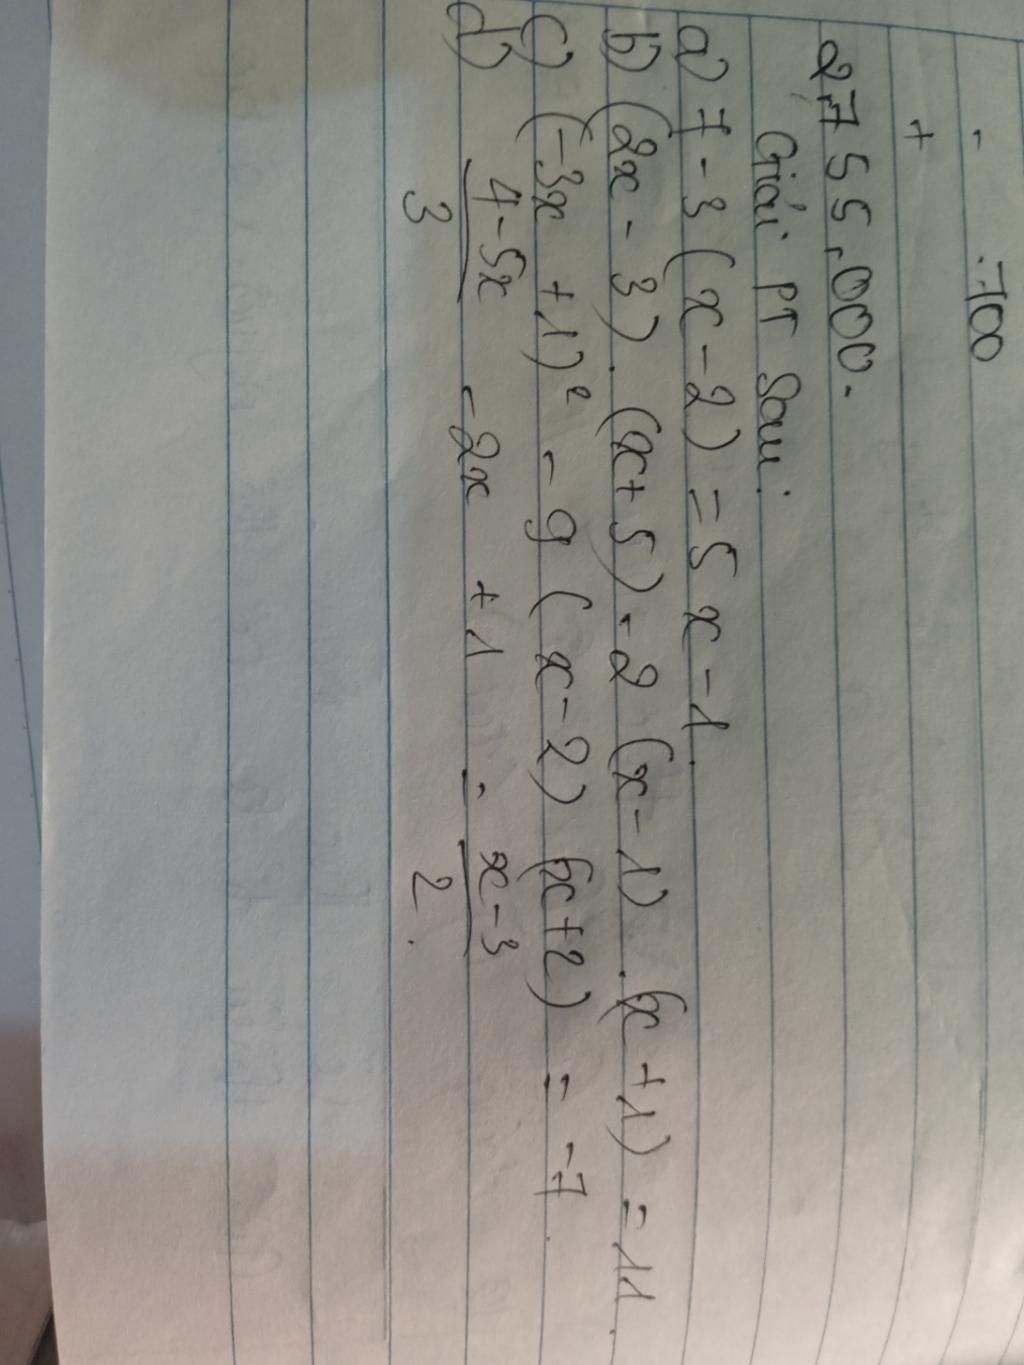 - .700
+
2,755,000.
Giải PT Sau:
a) 7 - 3 (x - 2) = 5x - 1.
b) (2x - 3) . (x + 5) - 2 (x - 1) . (x + 1) = 11.
c) (-3x + 1)² - 9 (x - 2) (x + 2) = -7.
d) (4 - 5x)/3 - 2x + 1 = (x - 3)/2.